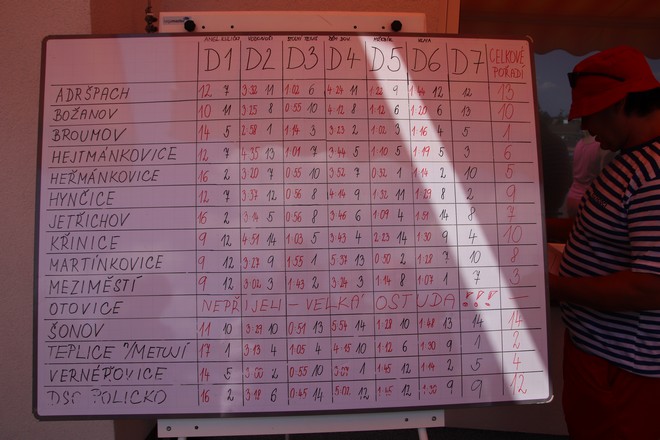 D1 D2 D3 D4 D5 D6 D7 CELKOVÉ POŘADÍ
ADRŠPACH 12 7 3:32 11 1:02 6 4:24 11 1:23 9 1:44 12 12 13
BOŽANOV 10 11 3:25 8 0:55 10 4:12 8 1:12 6 1:20 6 13 10
BROUMOV 14 5 2:58 1 1:14 3 3:23 2 1:02 3 1:16 4 5 1
HEJTMÁNKOVICE 12 7 4:35 13 1:01 7 3:44 5 1:10 5 1:19 5 3 6
HEŘMÁNKOVICE 16 2 3:20 7 0:55 10 3:52 7 0:32 1 1:14 2 10 5
HYNČICE 12 7 3:37 12 0:56 8 4:14 9 1:32 11 1:29 8 2 9
JETŘICHOV 16 2 3:14 5 0:56 8 3:46 6 1:09 4 1:51 14 8 7
KŘINICE 9 12 4:51 14 1:03 5 3:43 4 2:23 14 1:30 9 4 10
MARTÍNKOVICE 9 12 3:27 9 1:55 1 5:37 13 0:50 2 1:28 7 10 8
MEZIMĚSTÍ 9 12 3:02 3 1:43 2 3:24 3 1:14 8 1:07 1 7 3
OTOVICE NEPŘIJELI - VELKÁ OSTUDA !!! -
ŠONOV 11 10 3:29 10 0:51 13 5:57 14 1:28 10 1:48 13 14 14
TEPLICE N/METUJÍ 17 1 3:13 4 1:05 4 4:15 10 1:12 6 1:30 9 1 2
VERNÉŘOVICE 14 5 3:00 2 0:55 10 3:09 1 1:45 12 1:14 2 5 4
POLICKO 16 2 3:18 6 0:45 14 5:02 12 1:45 12 1:30 9 9 12